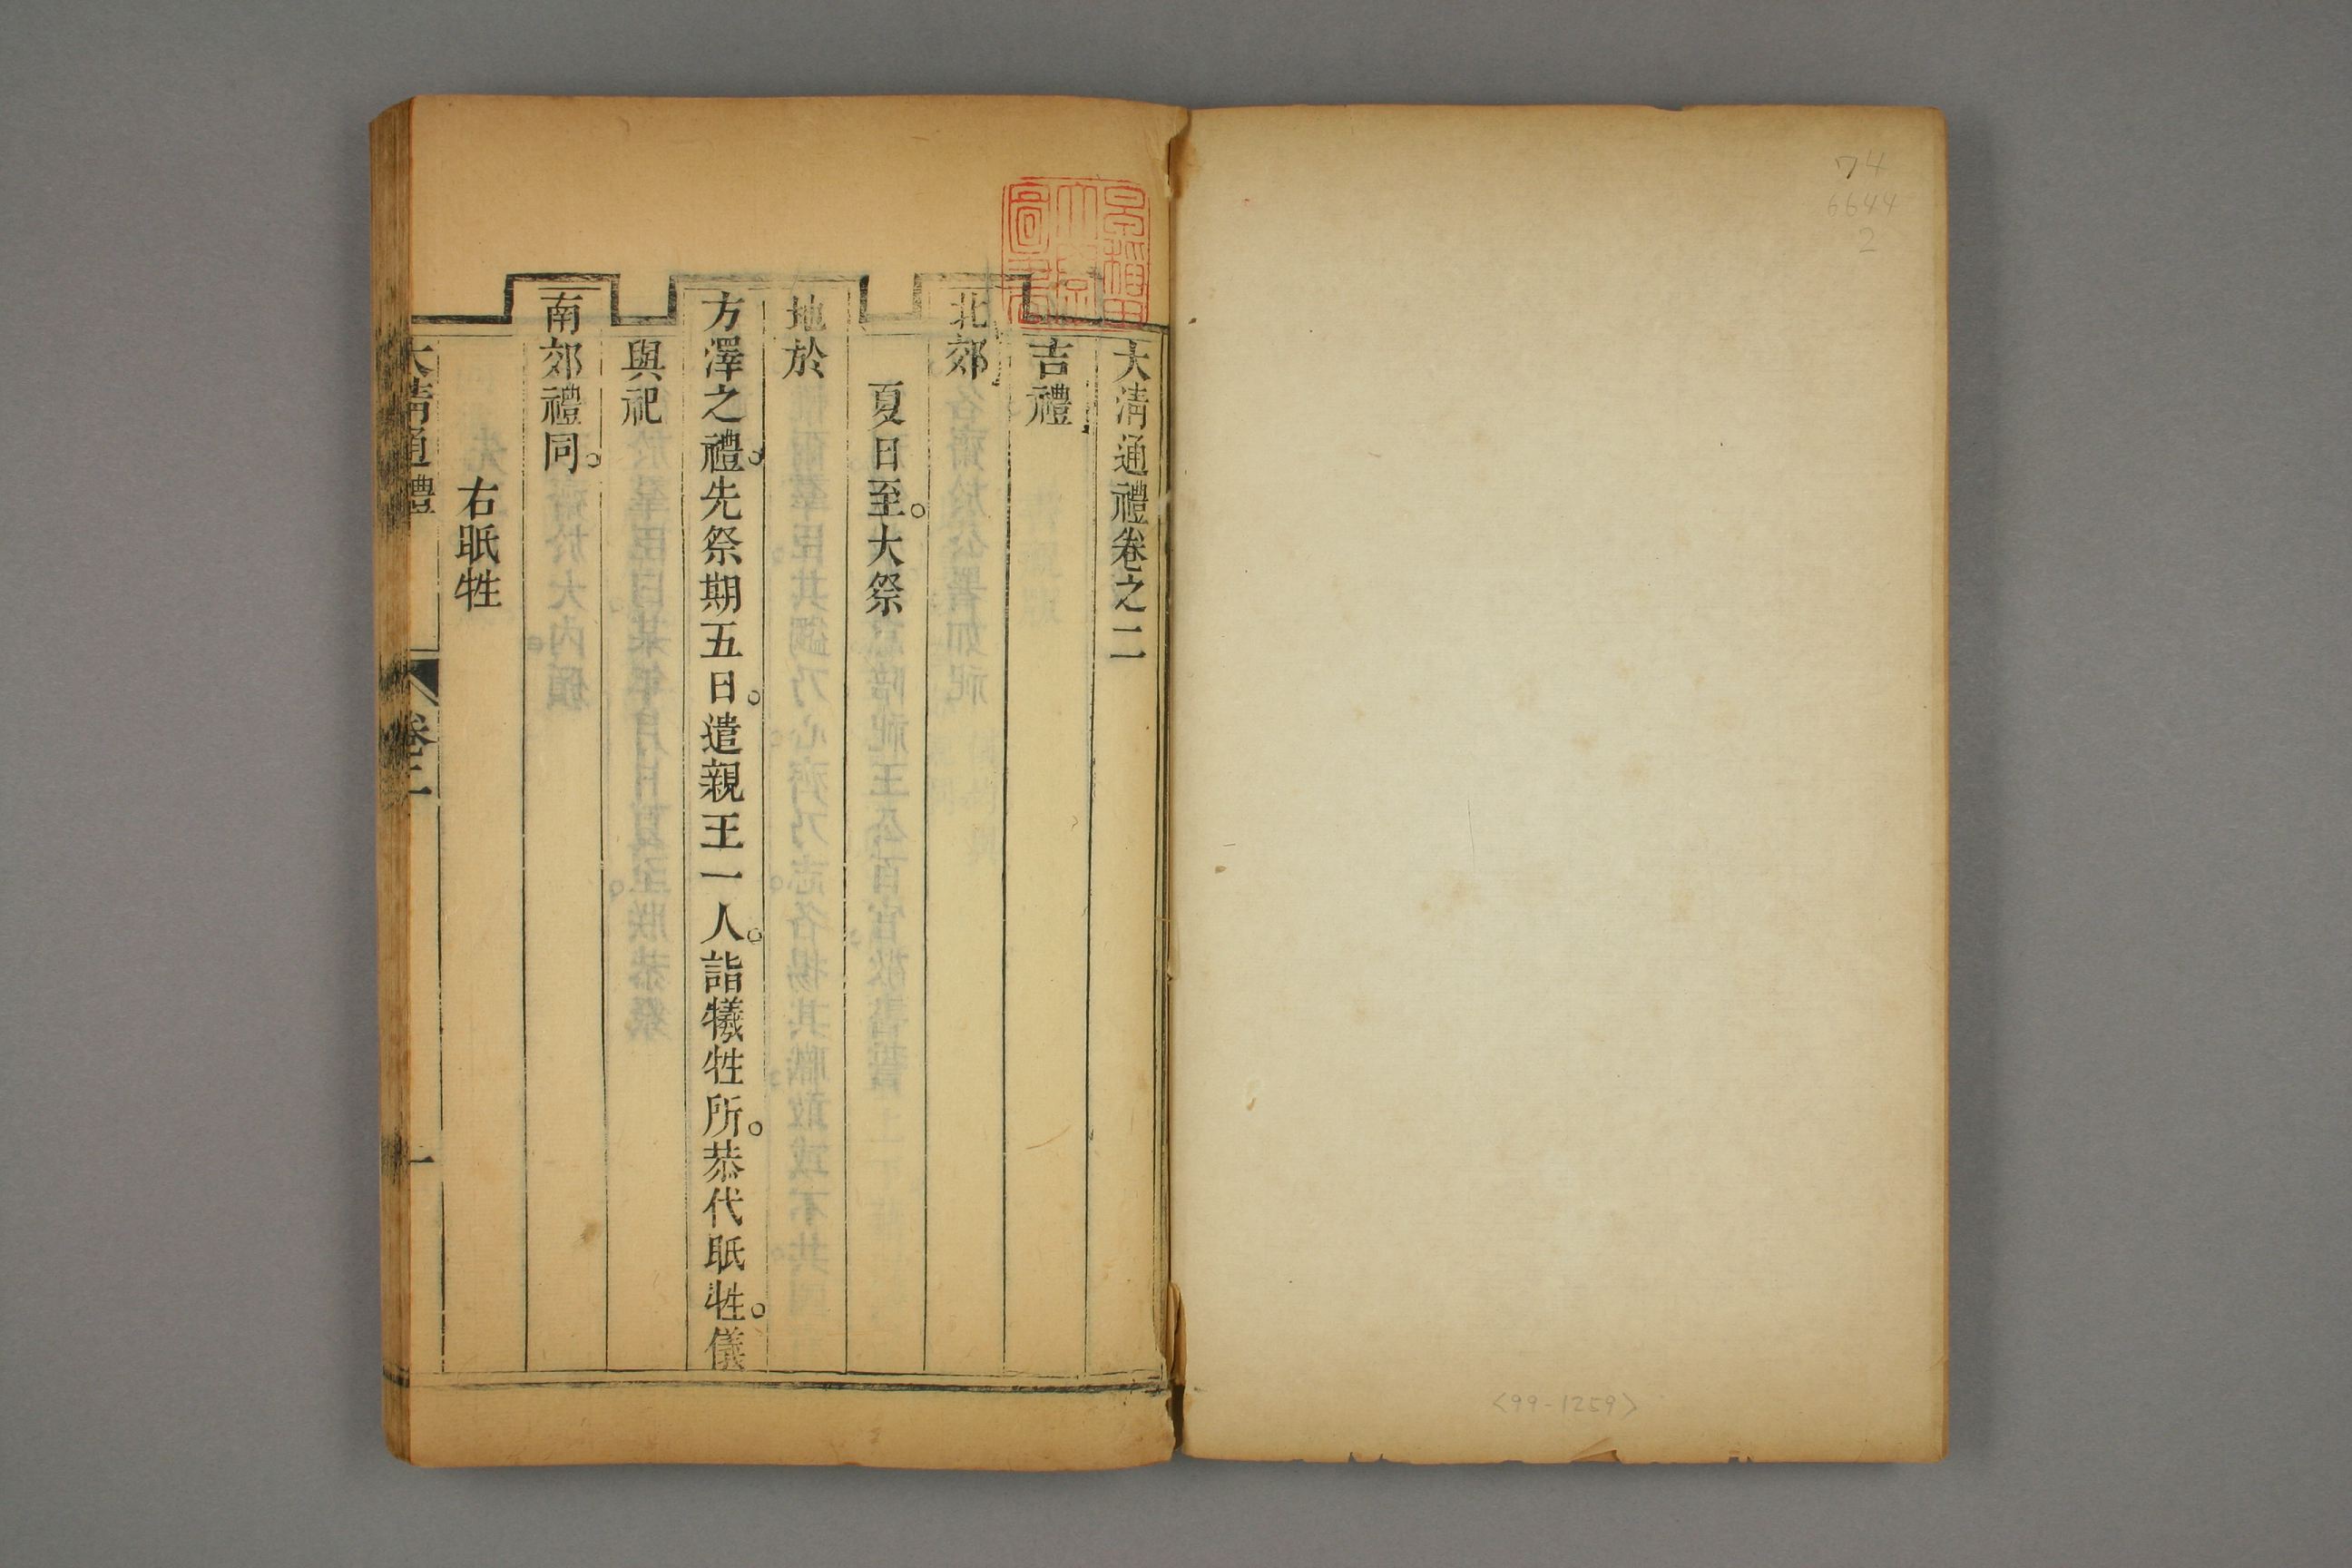 74
6644
2
<99-1259>
大淸通禮卷之二
吉禮
北郊
夏日至。大祭
地於
方澤之禮。先祭期五日。遣親王一人。詣犧牲所。恭代眡牲。儀
與祀
南郊禮同。
右眡牲
大淸通禮
卷二
一